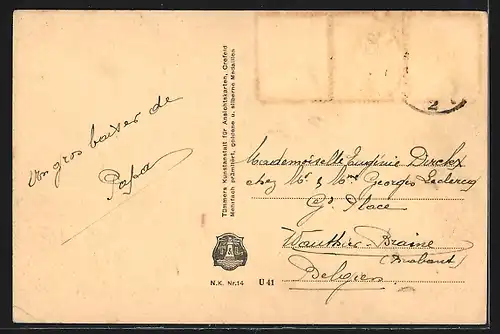 Un gros baiser de
Papa
Tümmers Kunstanstalt für Ansichtskarten, Crefeld
Mehrfach prämiiert, goldene u. silberne Medaillen
2
Mademoiselle Eugénie Dirckx
chez Mr & Mme Georges Leclercq
Gd Place
Wauthier-Braine
(Brabant)
Belgien
N.K. Nr. 14 U 41